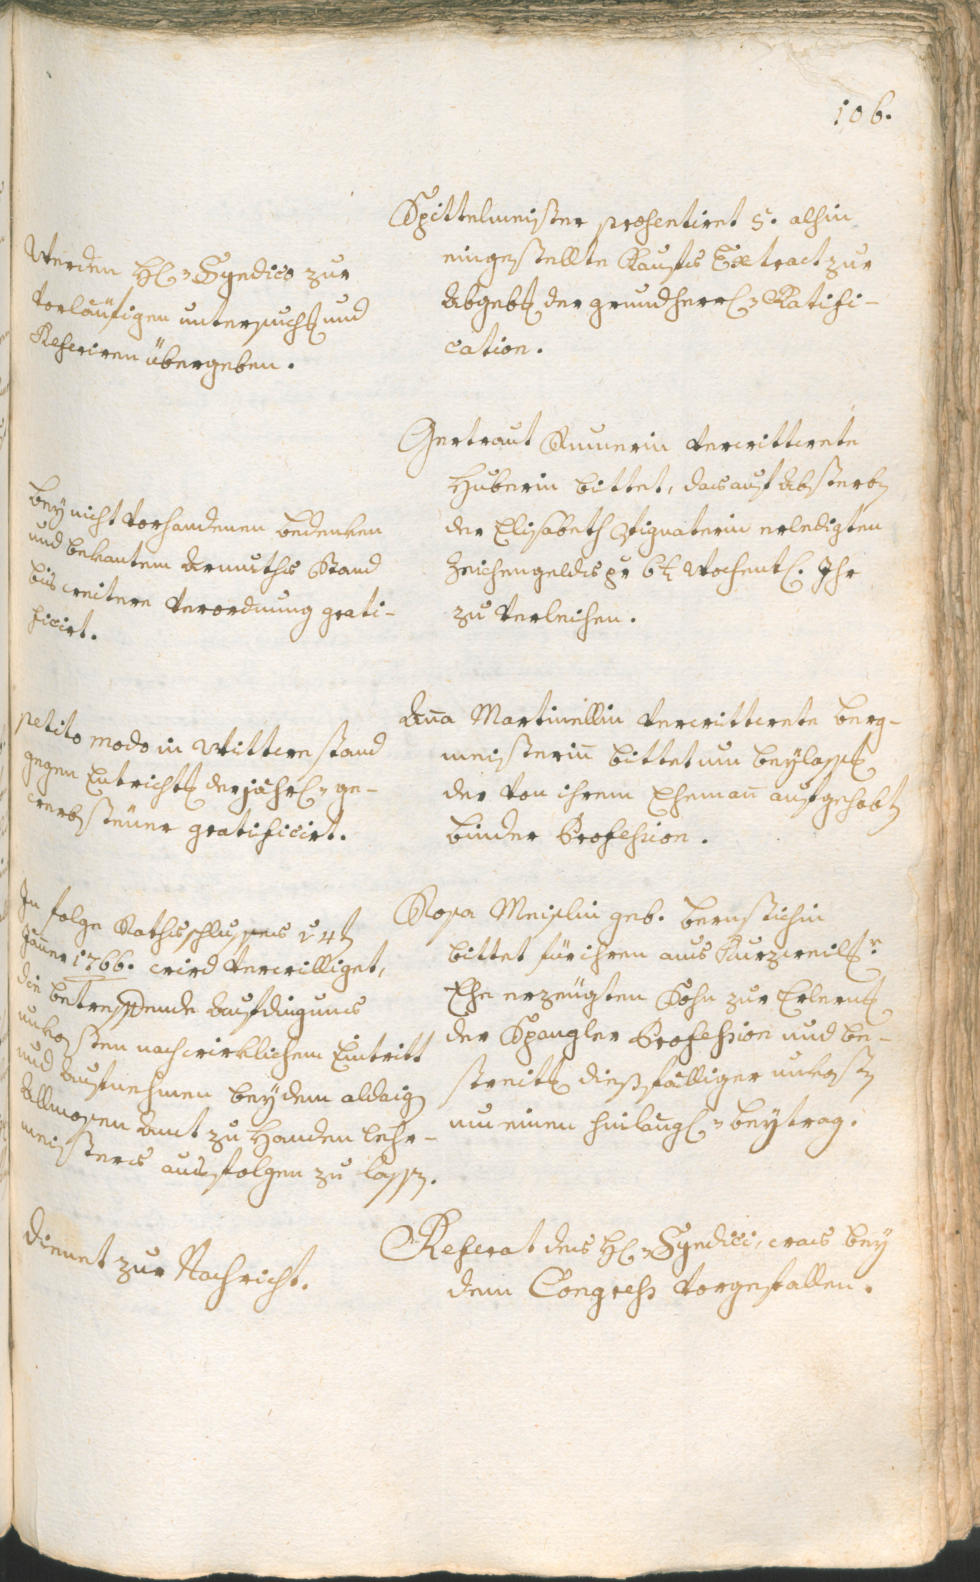 106.
Spittelmeister præsentiret 5. alhin
eingestellte Kaufs Extract zur
Abgebg der grundherrl: Ratifi-
cation.
Werden H: Syndico zur
vorläufigen untersuchg und
Referiren übergeben.
Gertraut verwittwete
Huberin bittet, das auf Absterbn
der Elisabeth erledigten
Zeichengeldes pr 6 x wochentl: Ihr
zu verleihen.
bey nicht vorhandenen bedenken
und bekantem Armuths Stand
bis weitere verordnung grati-
ficirt.
Anna Martinellin verwittwete berg-
meisterin bittet um beylassg
der von ihrem Ehemann aufgehabtn
binder Profession.
petito modo in Wittwenstand
gegen Entrichtg der jährl: ge-
werbsteuer gratificirt.
Rosa Meislin geb. bernstichin
bittet für ihren aus
Ehe erzeugten Sohn zur Erlerng
der Spangler Profession und be-
streitg diesfälliger unkostn
um einen hinlängl: beytrag.
In folge Rathsschlusses
Jänner 1766. wird verwilliget,
die betreffende aufdingungs
unkosten nach wirklichem Eintritt
und aufnehmen bey dem aldaign
Allmosen Amt zu Handen lehr-
meisters ausfolgen zu lassn.
Referat des H: Syndici, was bey
dem Congress vorgefallen.
dienet zur Nachricht.